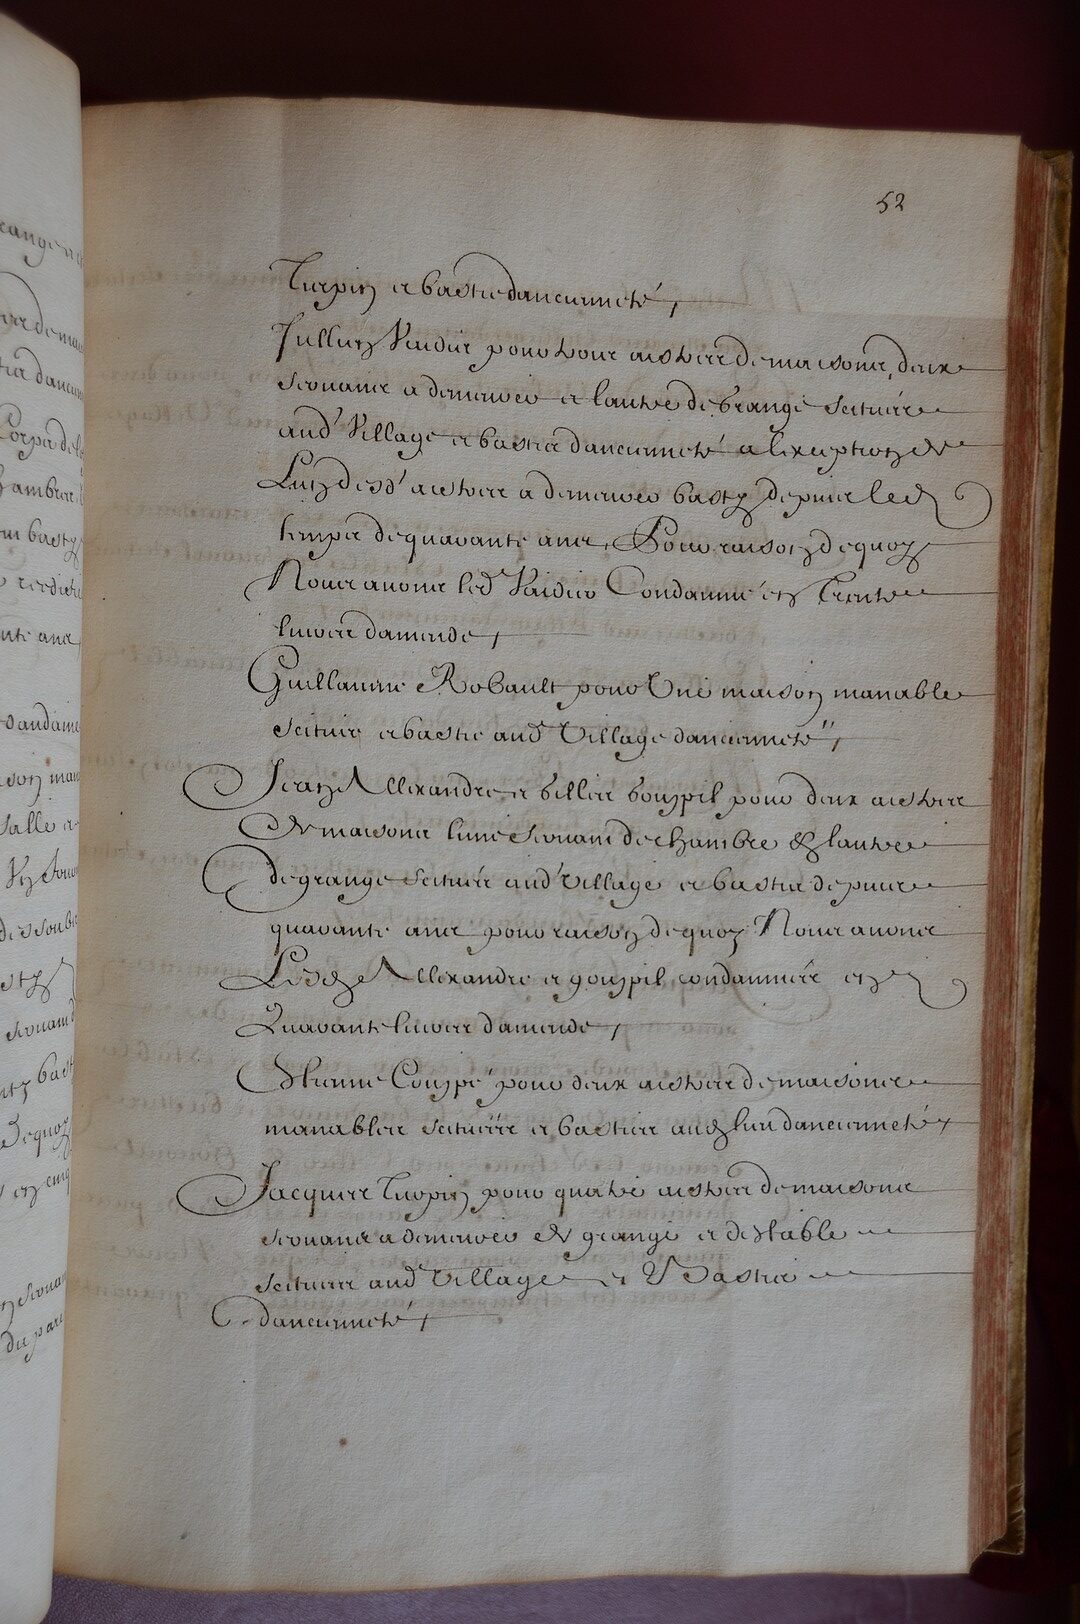 52
Turpin et bastie dancienneté,
Jullien Verdier pour trois aistres de maisons, deux
servans a demeures et lautre de grange scituéz
aud Village et bastis dancienneté a lexception de
Lun desd aistres a demeures basty depuis led
temps de quarante ans, Pour raison de quoy
Nous avons led Verdier Condamné en Trente
livres damende,
Guillaume Robault pour Une maison manable
scituée et bastie aud Village dancienneté,
Jean Allexandre et Gilles Gouppil pour deux aistres
de maisons lun servant de chambre & lautre
de grange scituéz aud Village et bastis depuis
quarante ans pour raison de quoy Nous avons
Lesd Allexandre et gouppil condamnéz en
Quarante livres damende,
Estienne Couppé pour deux aistres de maisons
manables scituées et basties aud lieu dancienneté,
Jacques Turpin pour quatre aistres de maisons
servans a demeures de grange et destable
scituez aud Village et Bastis
dancienneté,